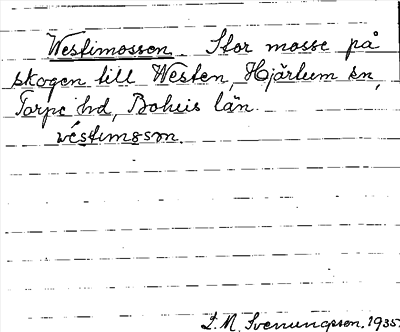 Westimossen. Stor mosse på
skogen till Westen, Hjärtum sn,
Torpe hd, Bohus län.
véstims̥s̥n.
L. M. Svenungsson. 1935.